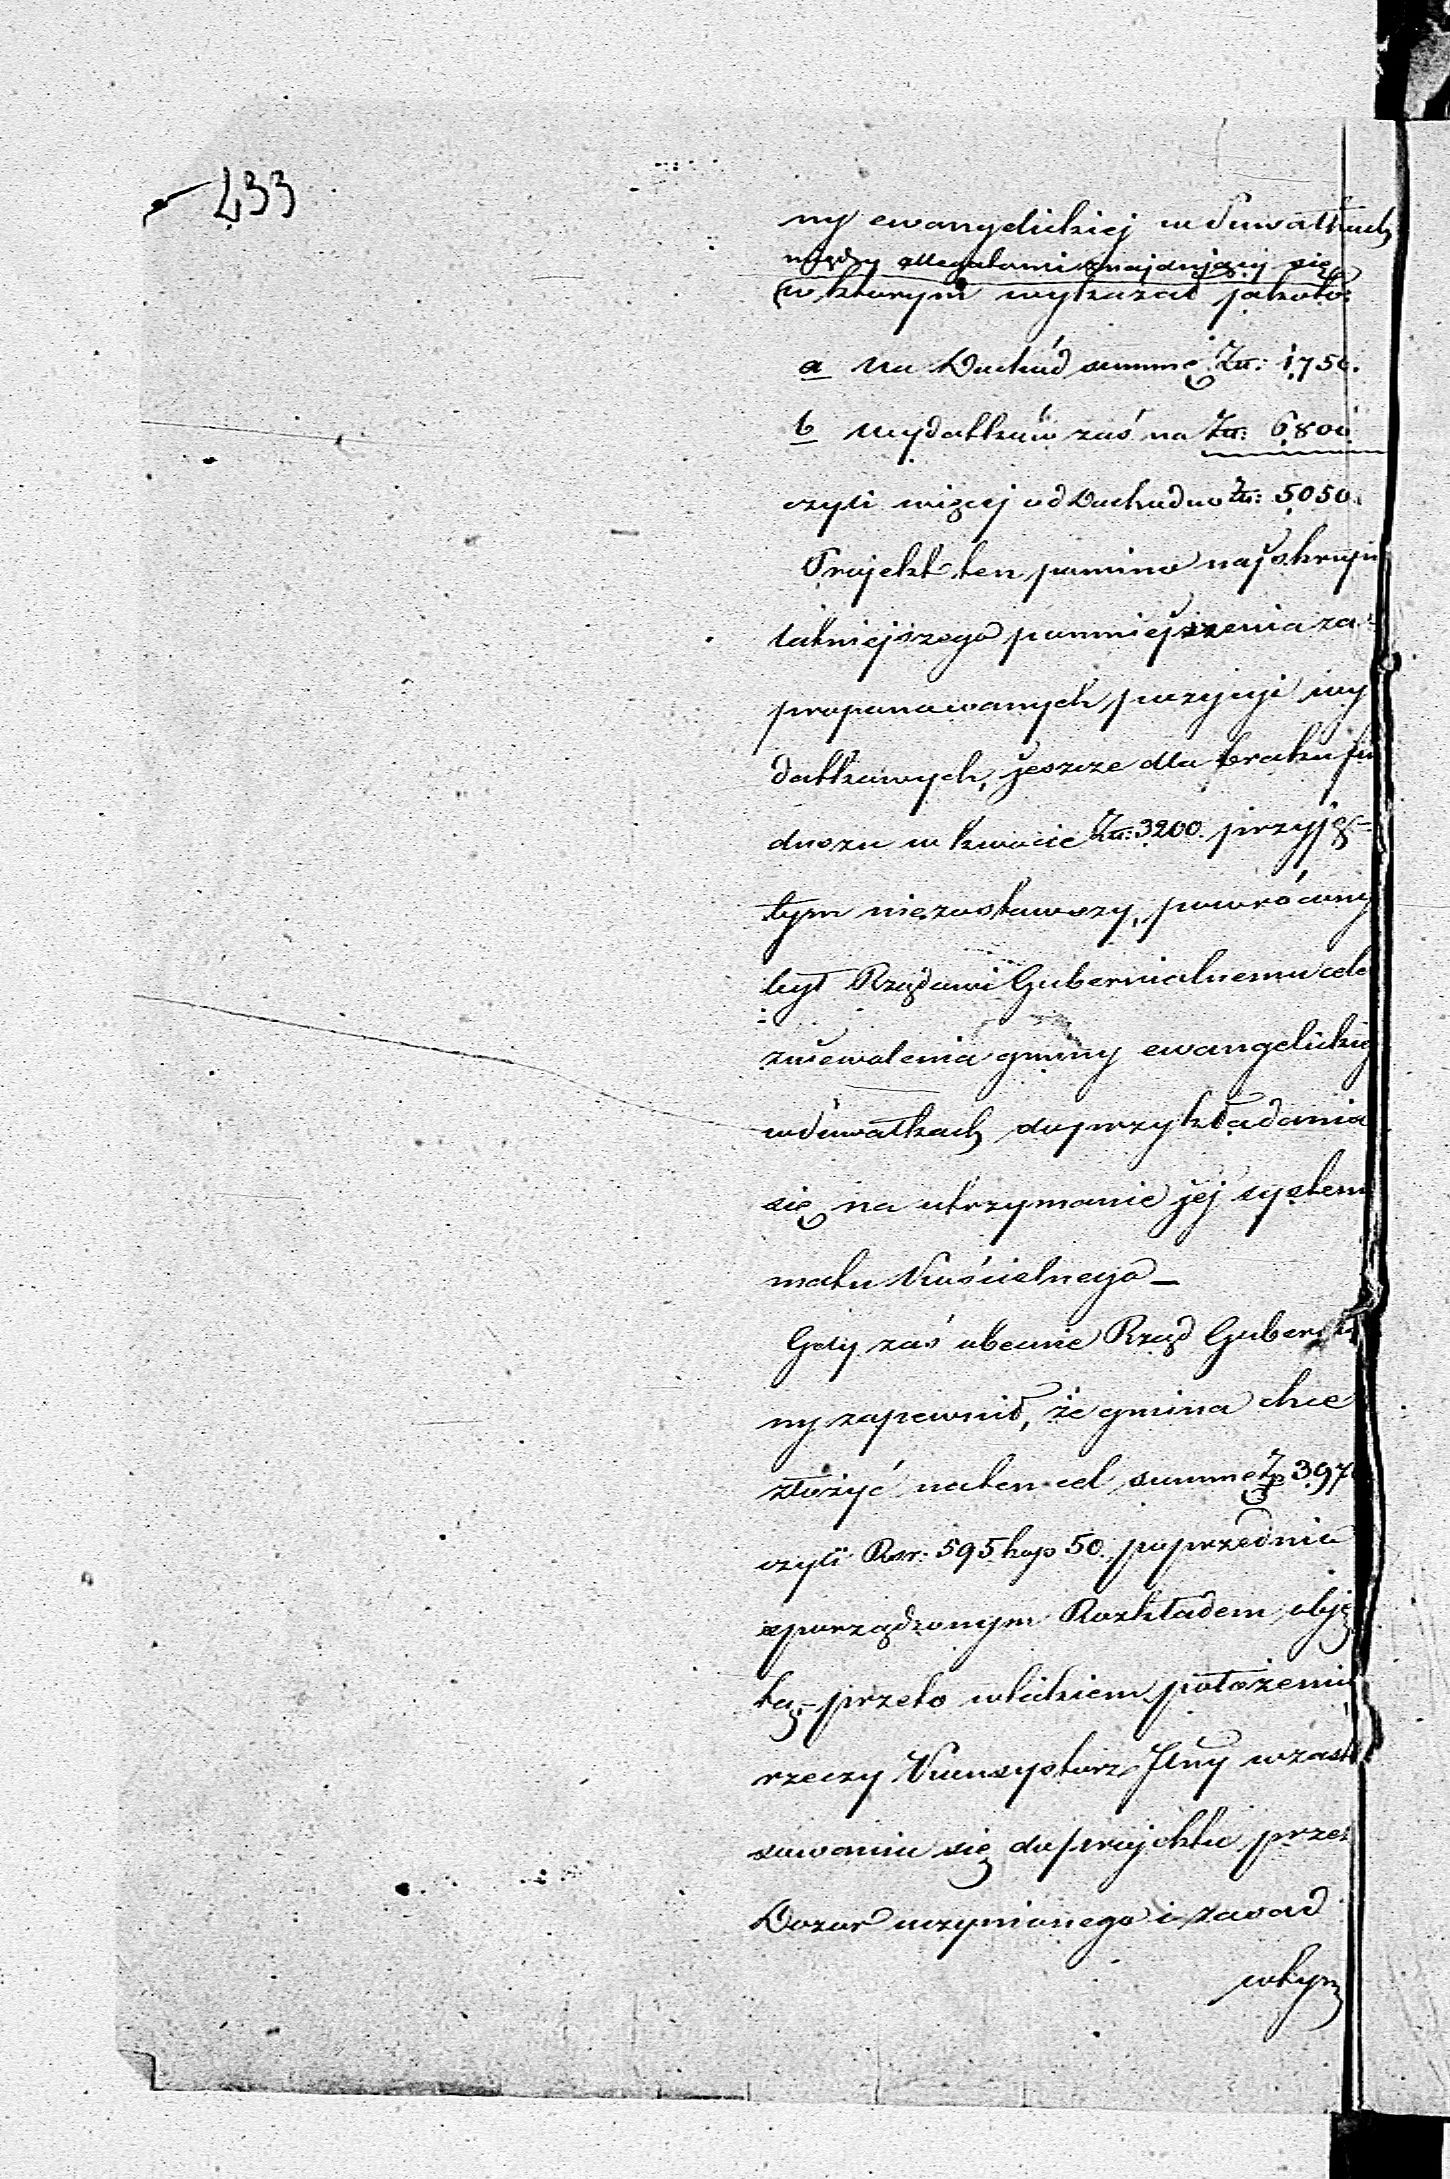 433
ny ewangelickiej w Suwałkach
między allegatami znajdującej się
w którym wykazał jakoto:
a na Dochód summę Zł: 1750.
b wydatków zaś na Zł: 6800
czyli więcej od Dochodu o Zł: 5050.
Projekt ten pomimo najskrupu
latniejszego pomniejszenia za=
proponowanych pozycyi wy
datkowych, jeszcze dla braku fun
duszu w kwocie Zł: 3200. przyję=
tym niezostawszy, powrócony
był Rządowi Gubernialnemu celem
zniewolenia gminy ewangelickiej
w Suwałkach do przykładania
się na utrzymanie jej system
matu Kościelnego—
Gdy zaś obecnie Rząd Gubernial
ny zapewnił, że gmina chce
złożyć na ten cel summę Zp 3970
czyli Rsr: 595 kop 50. poprzednio
sporządzonym Rozkładem obję
tą,— przeto w takiem położeniu
rzeczy Konsystorz Jlny w zasto
sowaniu się do projektu przez
Dozór uczynionego i zasad
w tym